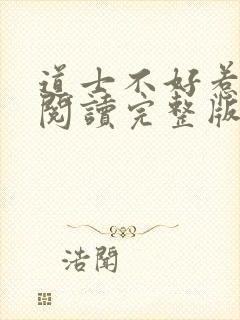 道士不好惹
閱讀完整版
浩聞